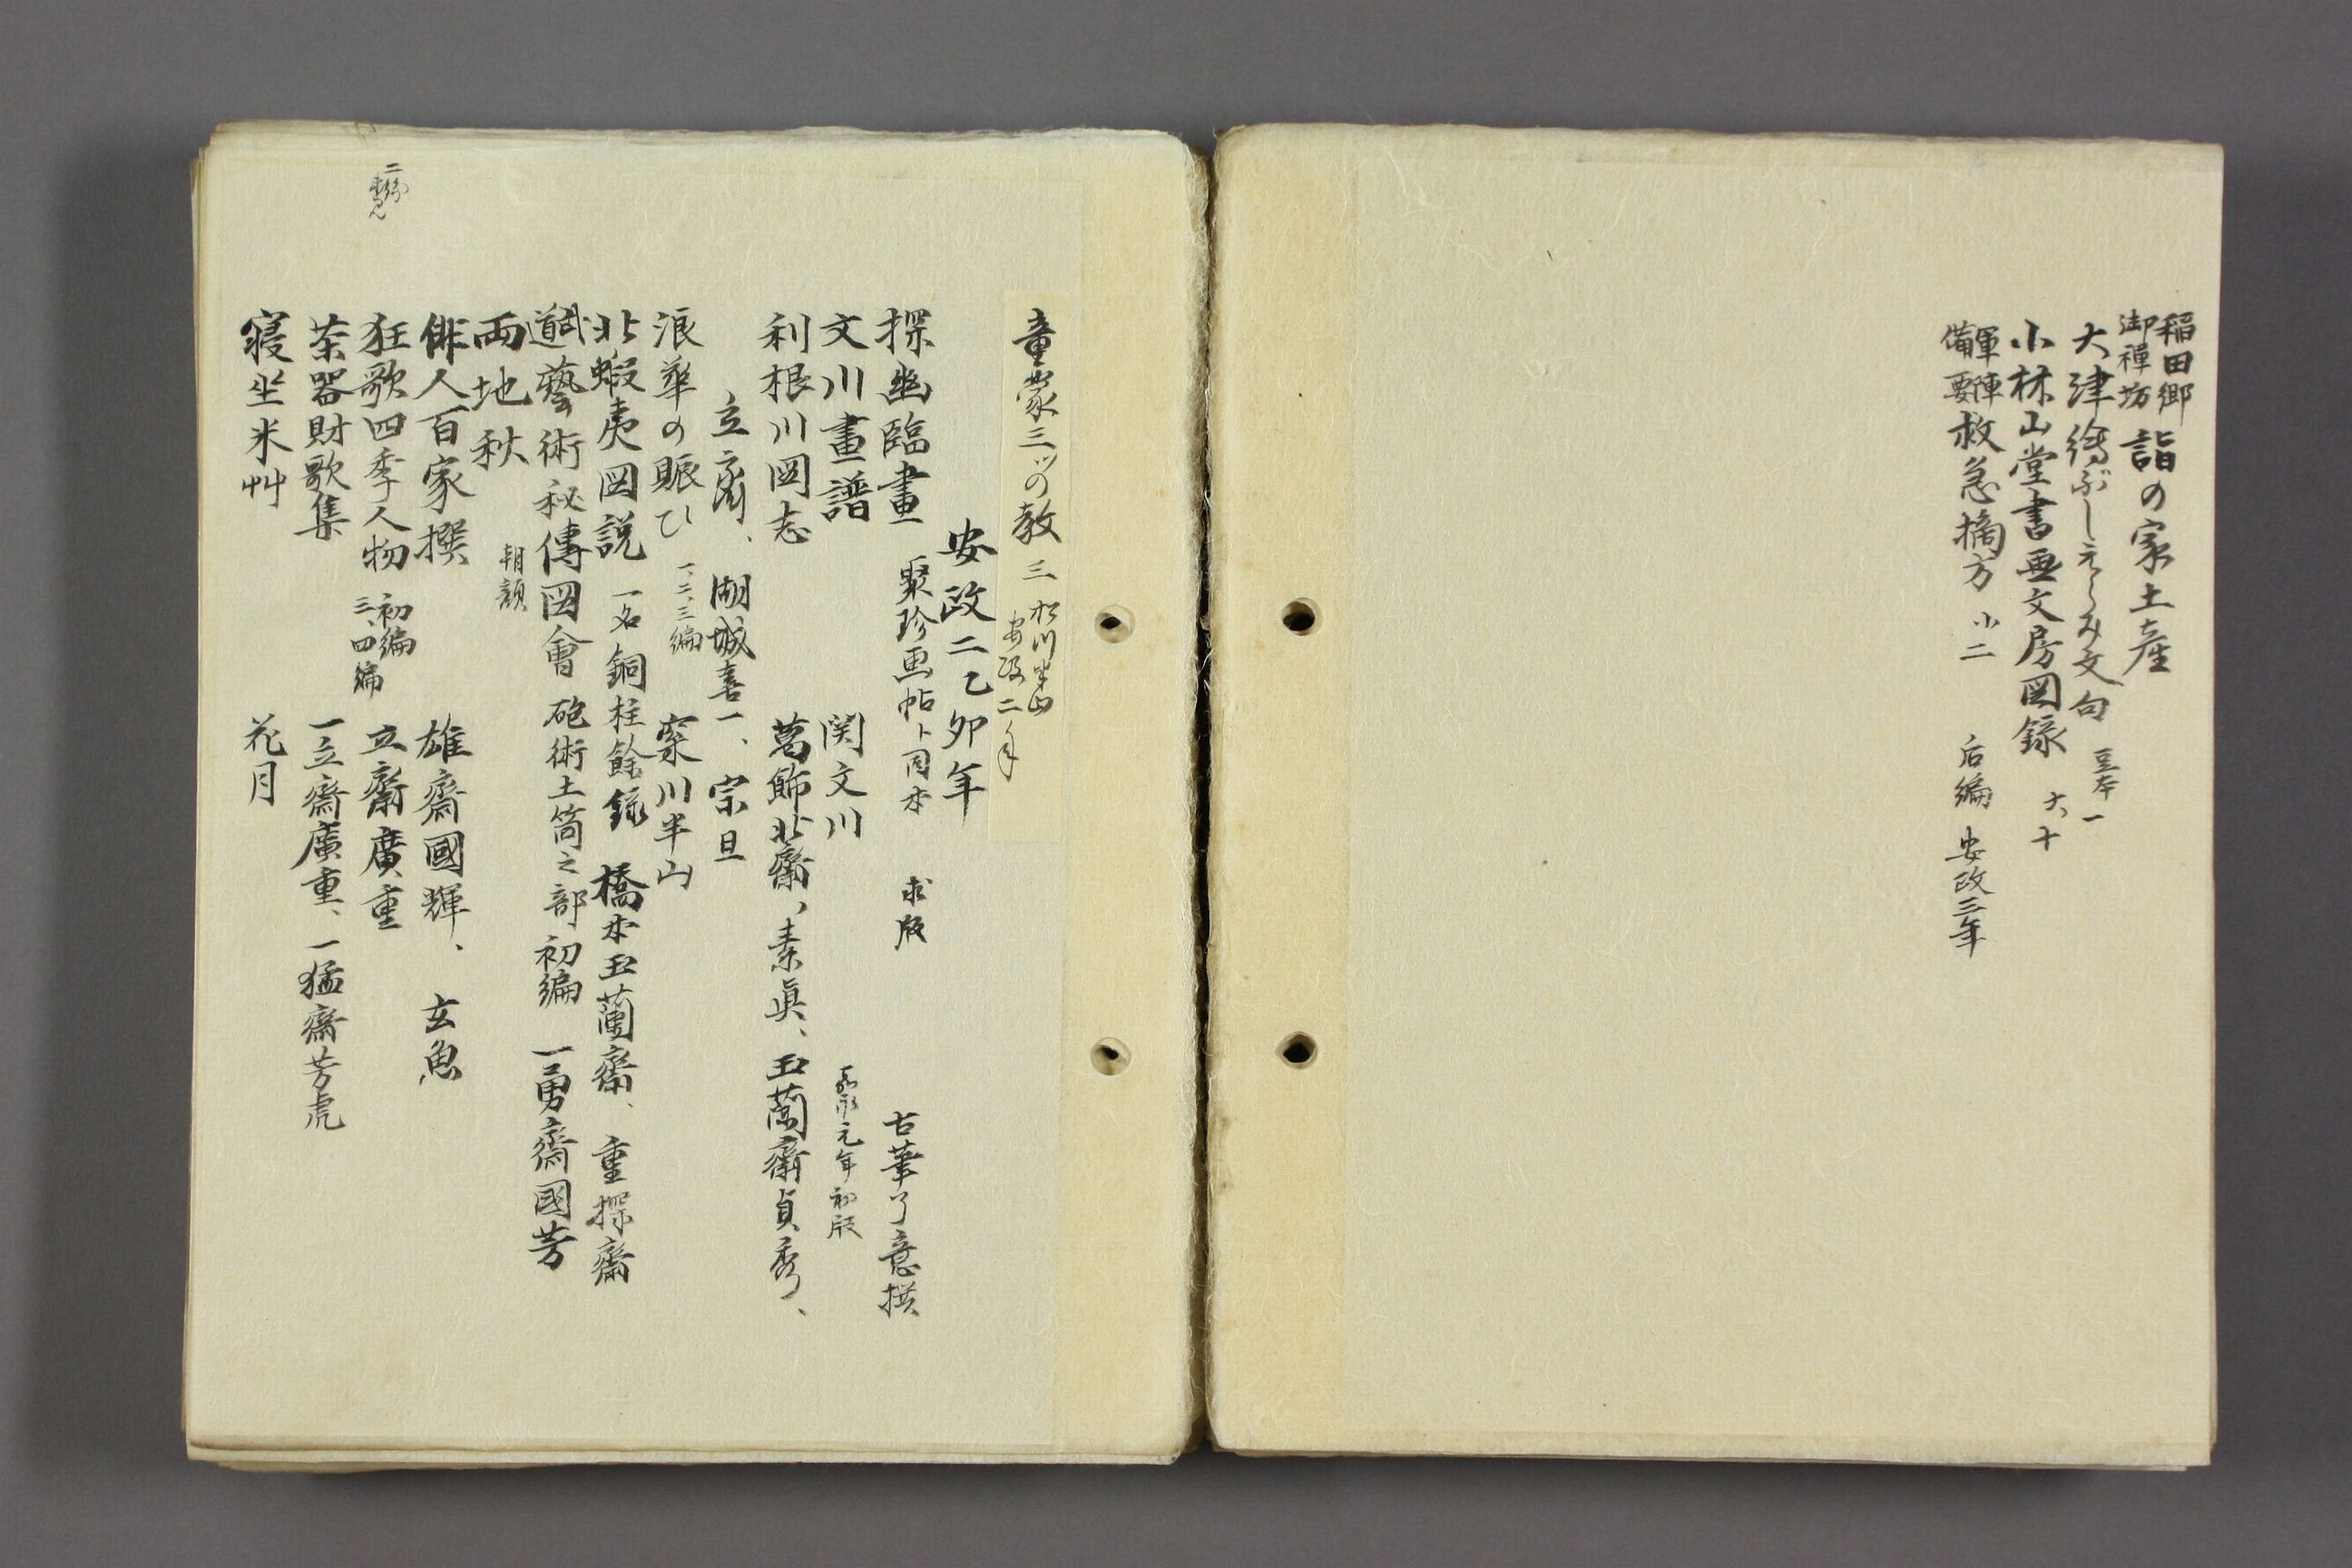 稲田郷
御禅坊
詣の家土産
大津絵ぶし 文句 豆本一
小林山堂書画文房図録 大十
軍陣
備要
救急摘方 小二 后編 安政三年
童蒙三ツの教 三 松川半山
安政二年
安政二乙卯年
探幽臨畫 聚珍画帖ト同本 求版 古筆了意撰
文川畫譜 関文川 嘉永元年初版
利根川図志 葛飾北齋、素眞、玉蘭齋貞秀、
立齋、湖城喜一、宗旦
浪華の賑ひ 一、二、三編 案川半山
北蝦夷図説 一名銅柱餘録 橋本玉蘭齋、重探齋
武道藝術秘傳図會 砲術土筒之部 初編 一勇齋國芳
両地秋 朝顔
俳人百家撰 雄齋國輝、玄魚
二編
狂歌四季人物 初編
三、四編
立齋廣重
茶器財歌集 一立齋廣重、一猛齋芳虎
寝坐米艸 花月